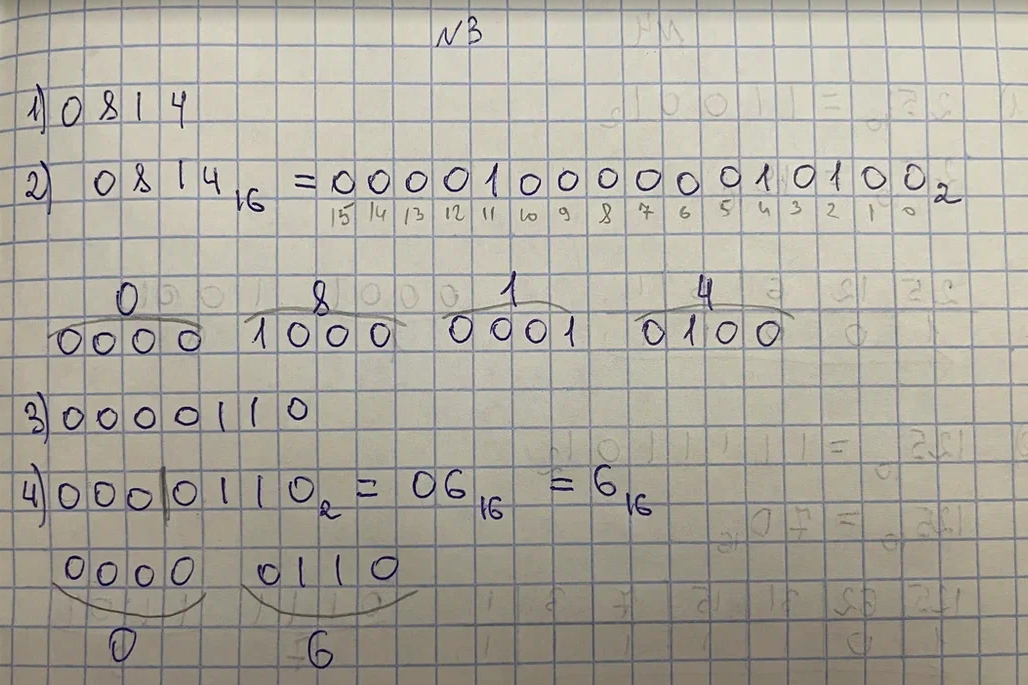 №3
1) 0 8 1 4
2) 0 8 1 4₁₆ = 0 0 0 0 1 0 0 0 0 0 0 1 0 1 0 0₂
15 14 13 12 11 10 9 8 7 6 5 4 3 2 1 0
0 8 1 4
0 0 0 0 1 0 0 0 0 0 0 1 0 1 0 0
3) 0 0 0 0 1 1 0
4) 0 0 0 | 0 1 1 0₂ = 0 6₁₆ = 6₁₆
0 0 0 0 0 1 1 0
0 6